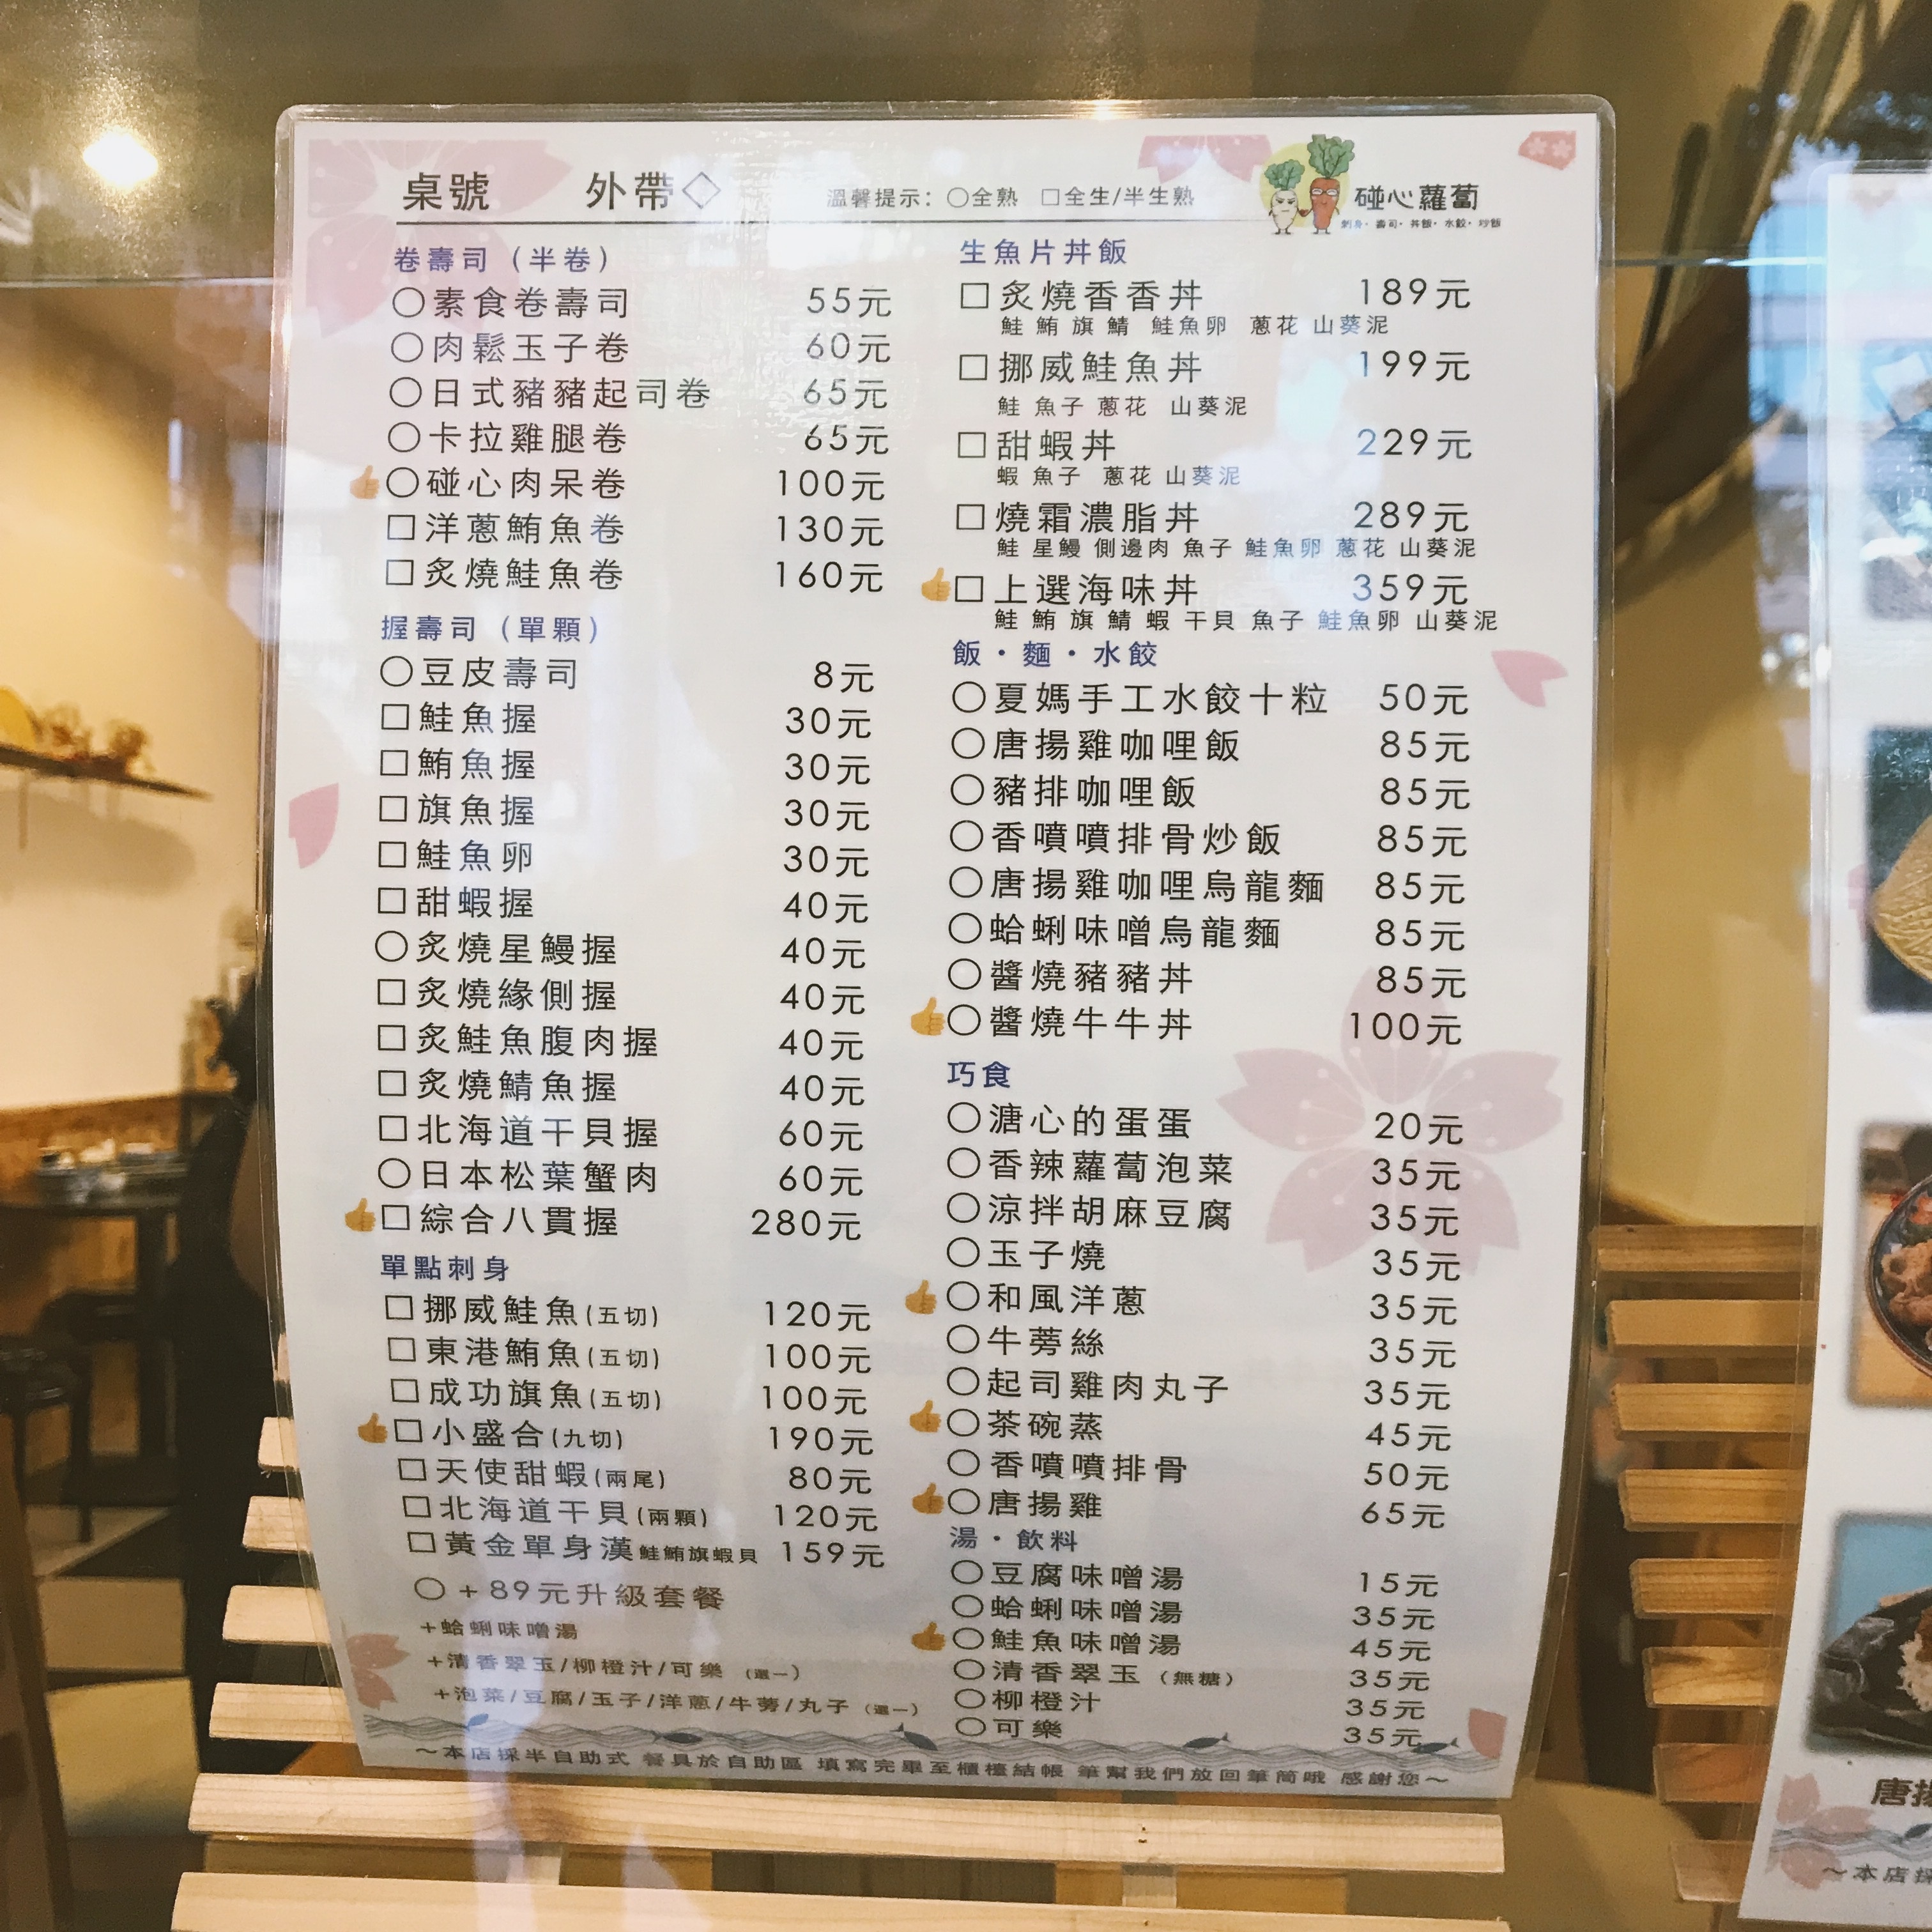 桌號 外帶◇ 溫馨提示：○全熟 □全生/半生熟
碰心蘿蔔
刺身・壽司・丼飯・水餃・炒飯
卷壽司（半卷）
○素食卷壽司 55元
○肉鬆玉子卷 60元
○日式豬豬起司卷 65元
○卡拉雞腿卷 65元
○碰心肉呆卷 100元
□洋蔥鮪魚卷 130元
□炙燒鮭魚卷 160元
握壽司（單顆）
○豆皮壽司 8元
□鮭魚握 30元
□鮪魚握 30元
□旗魚握 30元
□鮭魚卵 30元
□甜蝦握 40元
○炙燒星鰻握 40元
□炙燒緣側握 40元
□炙鮭魚腹肉握 40元
□炙燒鯖魚握 40元
□北海道干貝握 60元
○日本松葉蟹肉 60元
□綜合八貫握 280元
單點刺身
□挪威鮭魚(五切) 120元
□東港鮪魚(五切) 100元
□成功旗魚(五切) 100元
□小盛合(九切) 190元
□天使甜蝦(兩尾) 80元
□北海道干貝(兩顆) 120元
□黃金單身漢鮭鮪旗蝦貝 159元
○+89元升級套餐
+蛤蜊味噌湯
+清香翠玉/柳橙汁/可樂（選一）
+泡菜/豆腐/玉子/洋蔥/牛蒡/丸子（選一）
生魚片丼飯
□炙燒香香丼 189元
鮭 鮪 旗 鯖 鮭魚卵 蔥花 山葵泥
□挪威鮭魚丼 199元
鮭 魚子 蔥花 山葵泥
□甜蝦丼 229元
蝦 魚子 蔥花 山葵泥
□燒霜濃脂丼 289元
鮭 星鰻 側邊肉 魚子 鮭魚卵 蔥花 山葵泥
□上選海味丼 359元
鮭 鮪 旗 鯖 蝦 干貝 魚子 鮭魚卵 山葵泥
飯・麵・水餃
○夏媽手工水餃十粒 50元
○唐揚雞咖哩飯 85元
○豬排咖哩飯 85元
○香噴噴排骨炒飯 85元
○唐揚雞咖哩烏龍麵 85元
○蛤蜊味噌烏龍麵 85元
○醬燒豬豬丼 85元
○醬燒牛牛丼 100元
巧食
○溏心的蛋蛋 20元
○香辣蘿蔔泡菜 35元
○涼拌胡麻豆腐 35元
○玉子燒 35元
○和風洋蔥 35元
○牛蒡絲 35元
○起司雞肉丸子 35元
○茶碗蒸 45元
○香噴噴排骨 50元
○唐揚雞 65元
湯・飲料
○豆腐味噌湯 15元
○蛤蜊味噌湯 35元
○鮭魚味噌湯 45元
○清香翠玉（無糖） 35元
○柳橙汁 35元
○可樂 35元
～本店採半自助式 餐具於自助區 填寫完畢至櫃檯結帳 筆幫我們放回筆筒哦 感謝您～
唐揚
～本店採